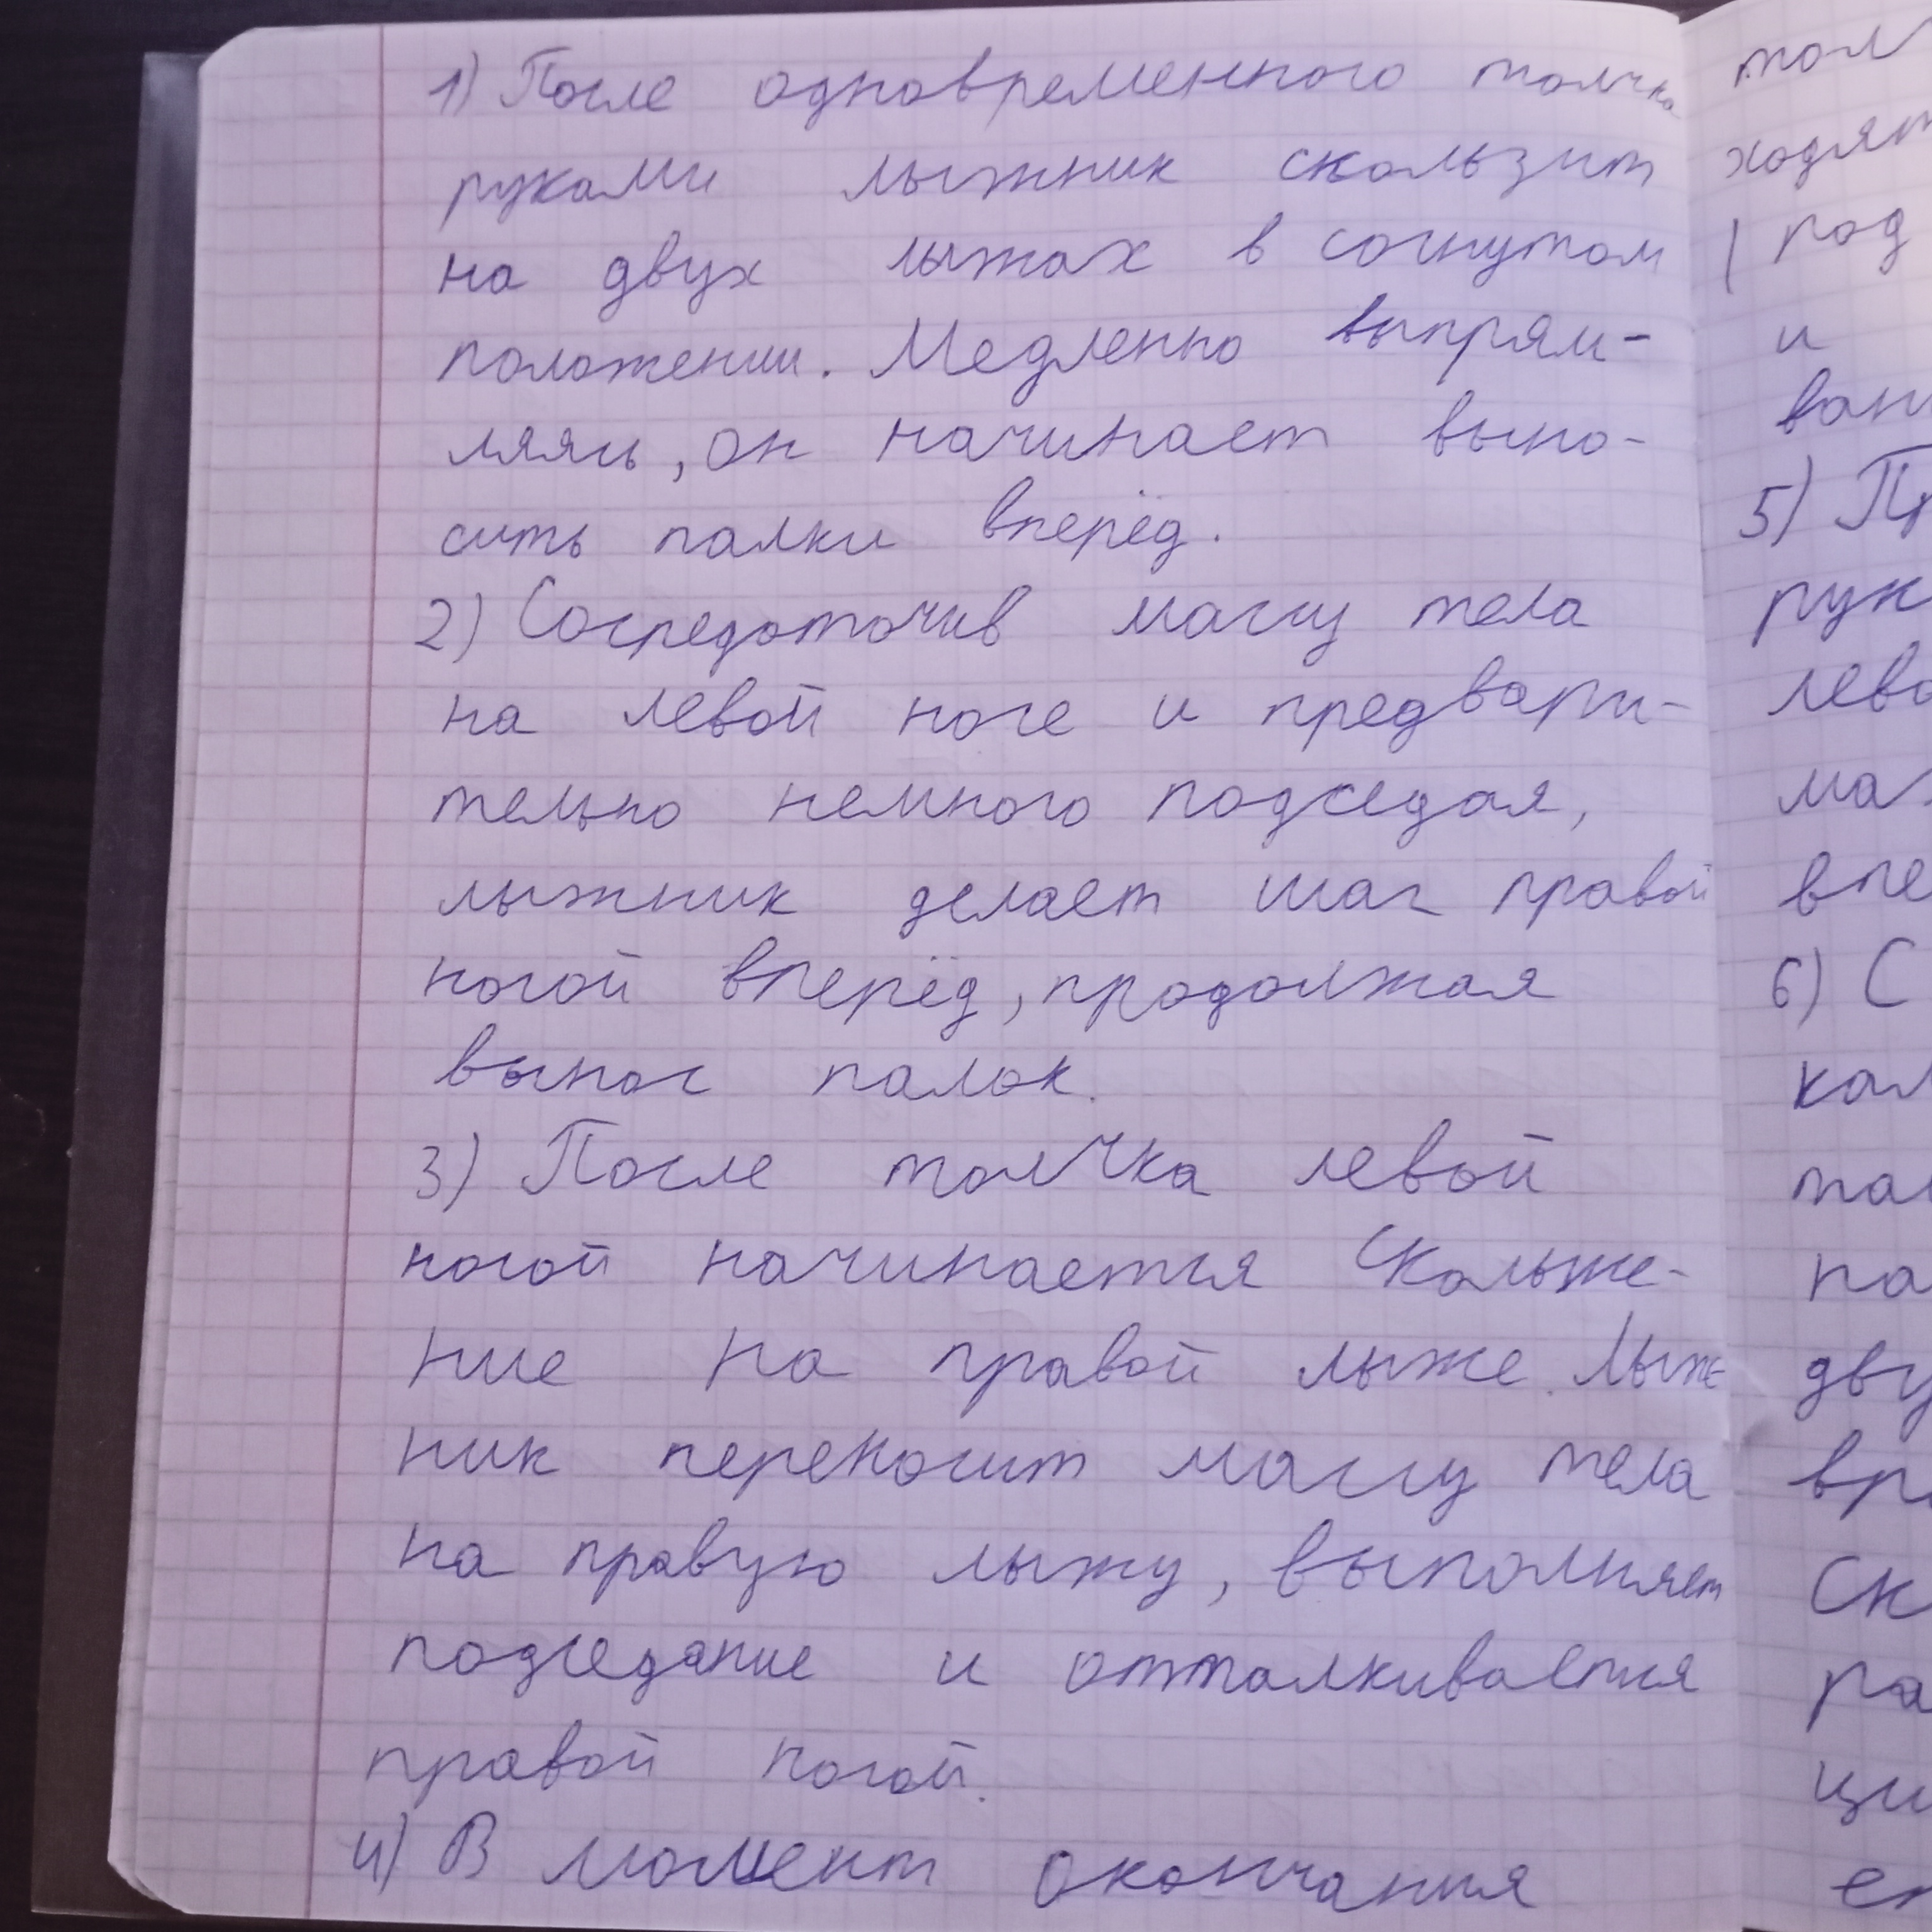 1) После одновременного толчка
руками лыжник скользит
на двух лыжах в согнутом
положении. Медленно выпрям-
ляясь, он начинает выно-
сить палки вперёд.
2) Сосредоточив массу тела
на левой ноге и предвари-
тельно немного подседая,
лыжник делает шаг правой
ногой вперёд, продолжая
вынос палок.
3) После толчка левой
ногой начинается скольже-
ние на правой лыже. Лыж
ник переносит массу тела
на правую лыжу, выполняет
подседание и отталкивается
правой ногой.
4) В момент окончания
тол
ходят
род
и
ван
5) Пр
рук
лево
мах
впе
6) С
кал
па
дву
вре
ск
ра
ци